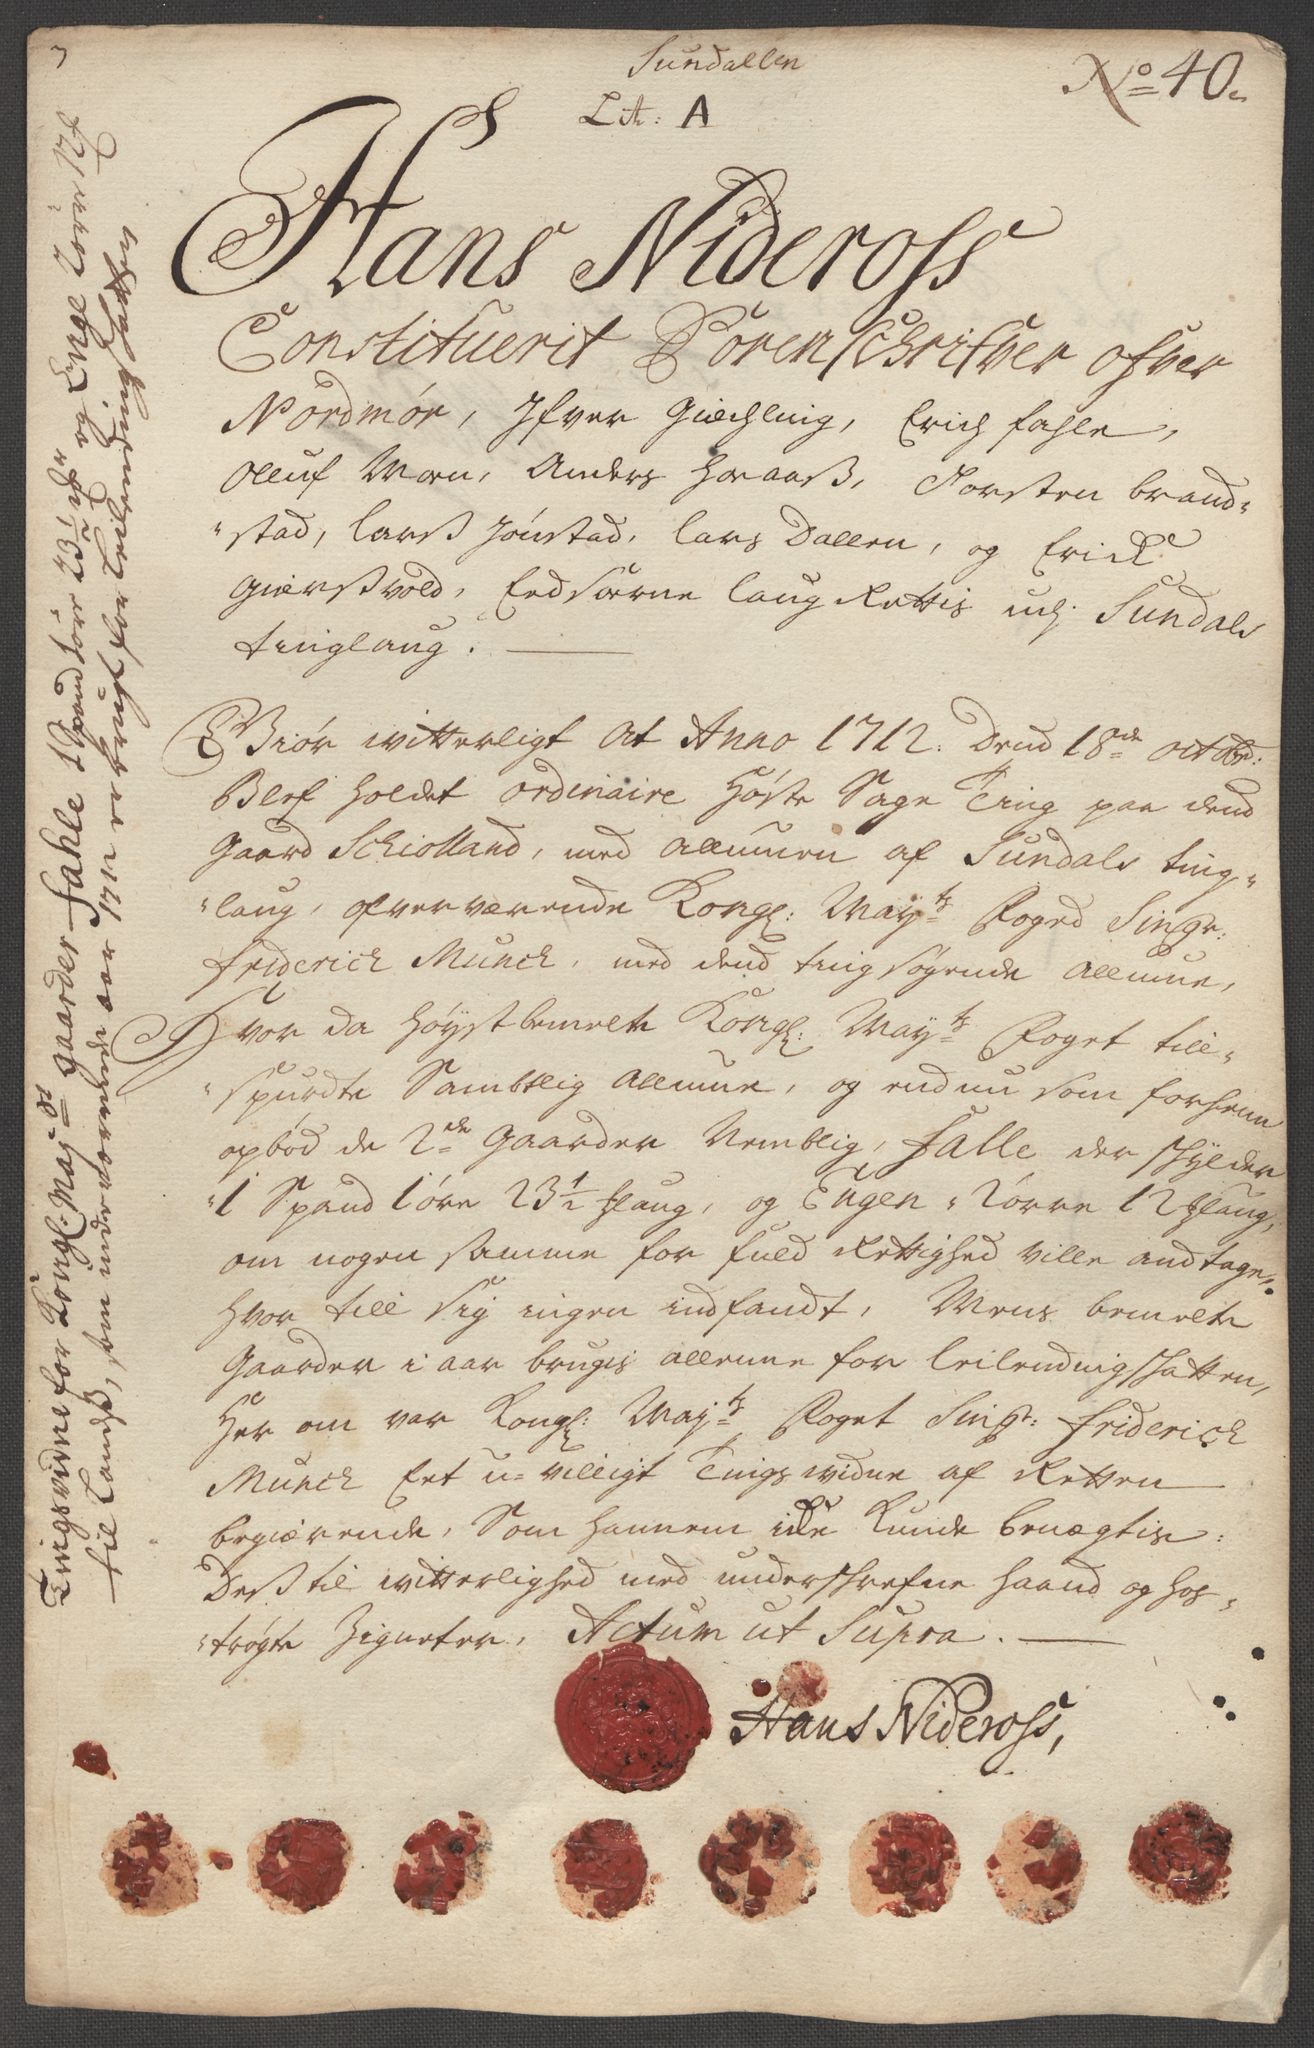 Sundallen
No 40.
Lit: A
Hans Nideross
Constituerit Sorenschrifver ofver
Nordmør, Ifver Giechling, Erich fahle,
Olluf Moen, Anders Horaaß, Torsten brand-
-stad, Larß Jönstad, Lars Dallen, og Erick
Gierßvold, Eedsorne laug Rettis udj Sundals
tinglaug.
Giør witterligt At Anno 1712. Dend 18de octobr:
Blef holdet ordinaire Høste Sage Ting paa dend
gaard Schiolland, med allmuen af Sundals ting-
-laug, ofverværende Kongl: Mayts Foged Singr:
friderich Munch, med dend tingsøgende allmue,
Hvor da høystbemelte Kongl: Mayts Foget till-
-spurdte Sambtlig allmue, og endnu som forhenn
opbød de 2de gaarder Nemblig, falle der schylder
1 Spand 1 øre 23½ Mlaug, og Engen 2 ørre 12 Mlaug,
om nogen samme for fuld Rettighed ville andtage,
hvor till sig ingen indfandt, Mens bemelte
gaarder i aar brugis allenne for leilendingschatten,
Her om var Kongl: Mayts Foget Singr: friderich
Munch Eet u-villigt Tingswidne af Retten
begiærende, Som hannem icke kunde benægtis:
Deß til witterlighed med underschrefne haand og hos-
-trøgte Zigneter, Actum ut Supra.
Hans Nideross,
Tingsvidne for Kongl: Maj:ts gaarder fahle 1 Spand 1 ör 23½ og Enge 2 ørr 12
til Landß, som underværende aar 1712 er brugt for Leilending schatten